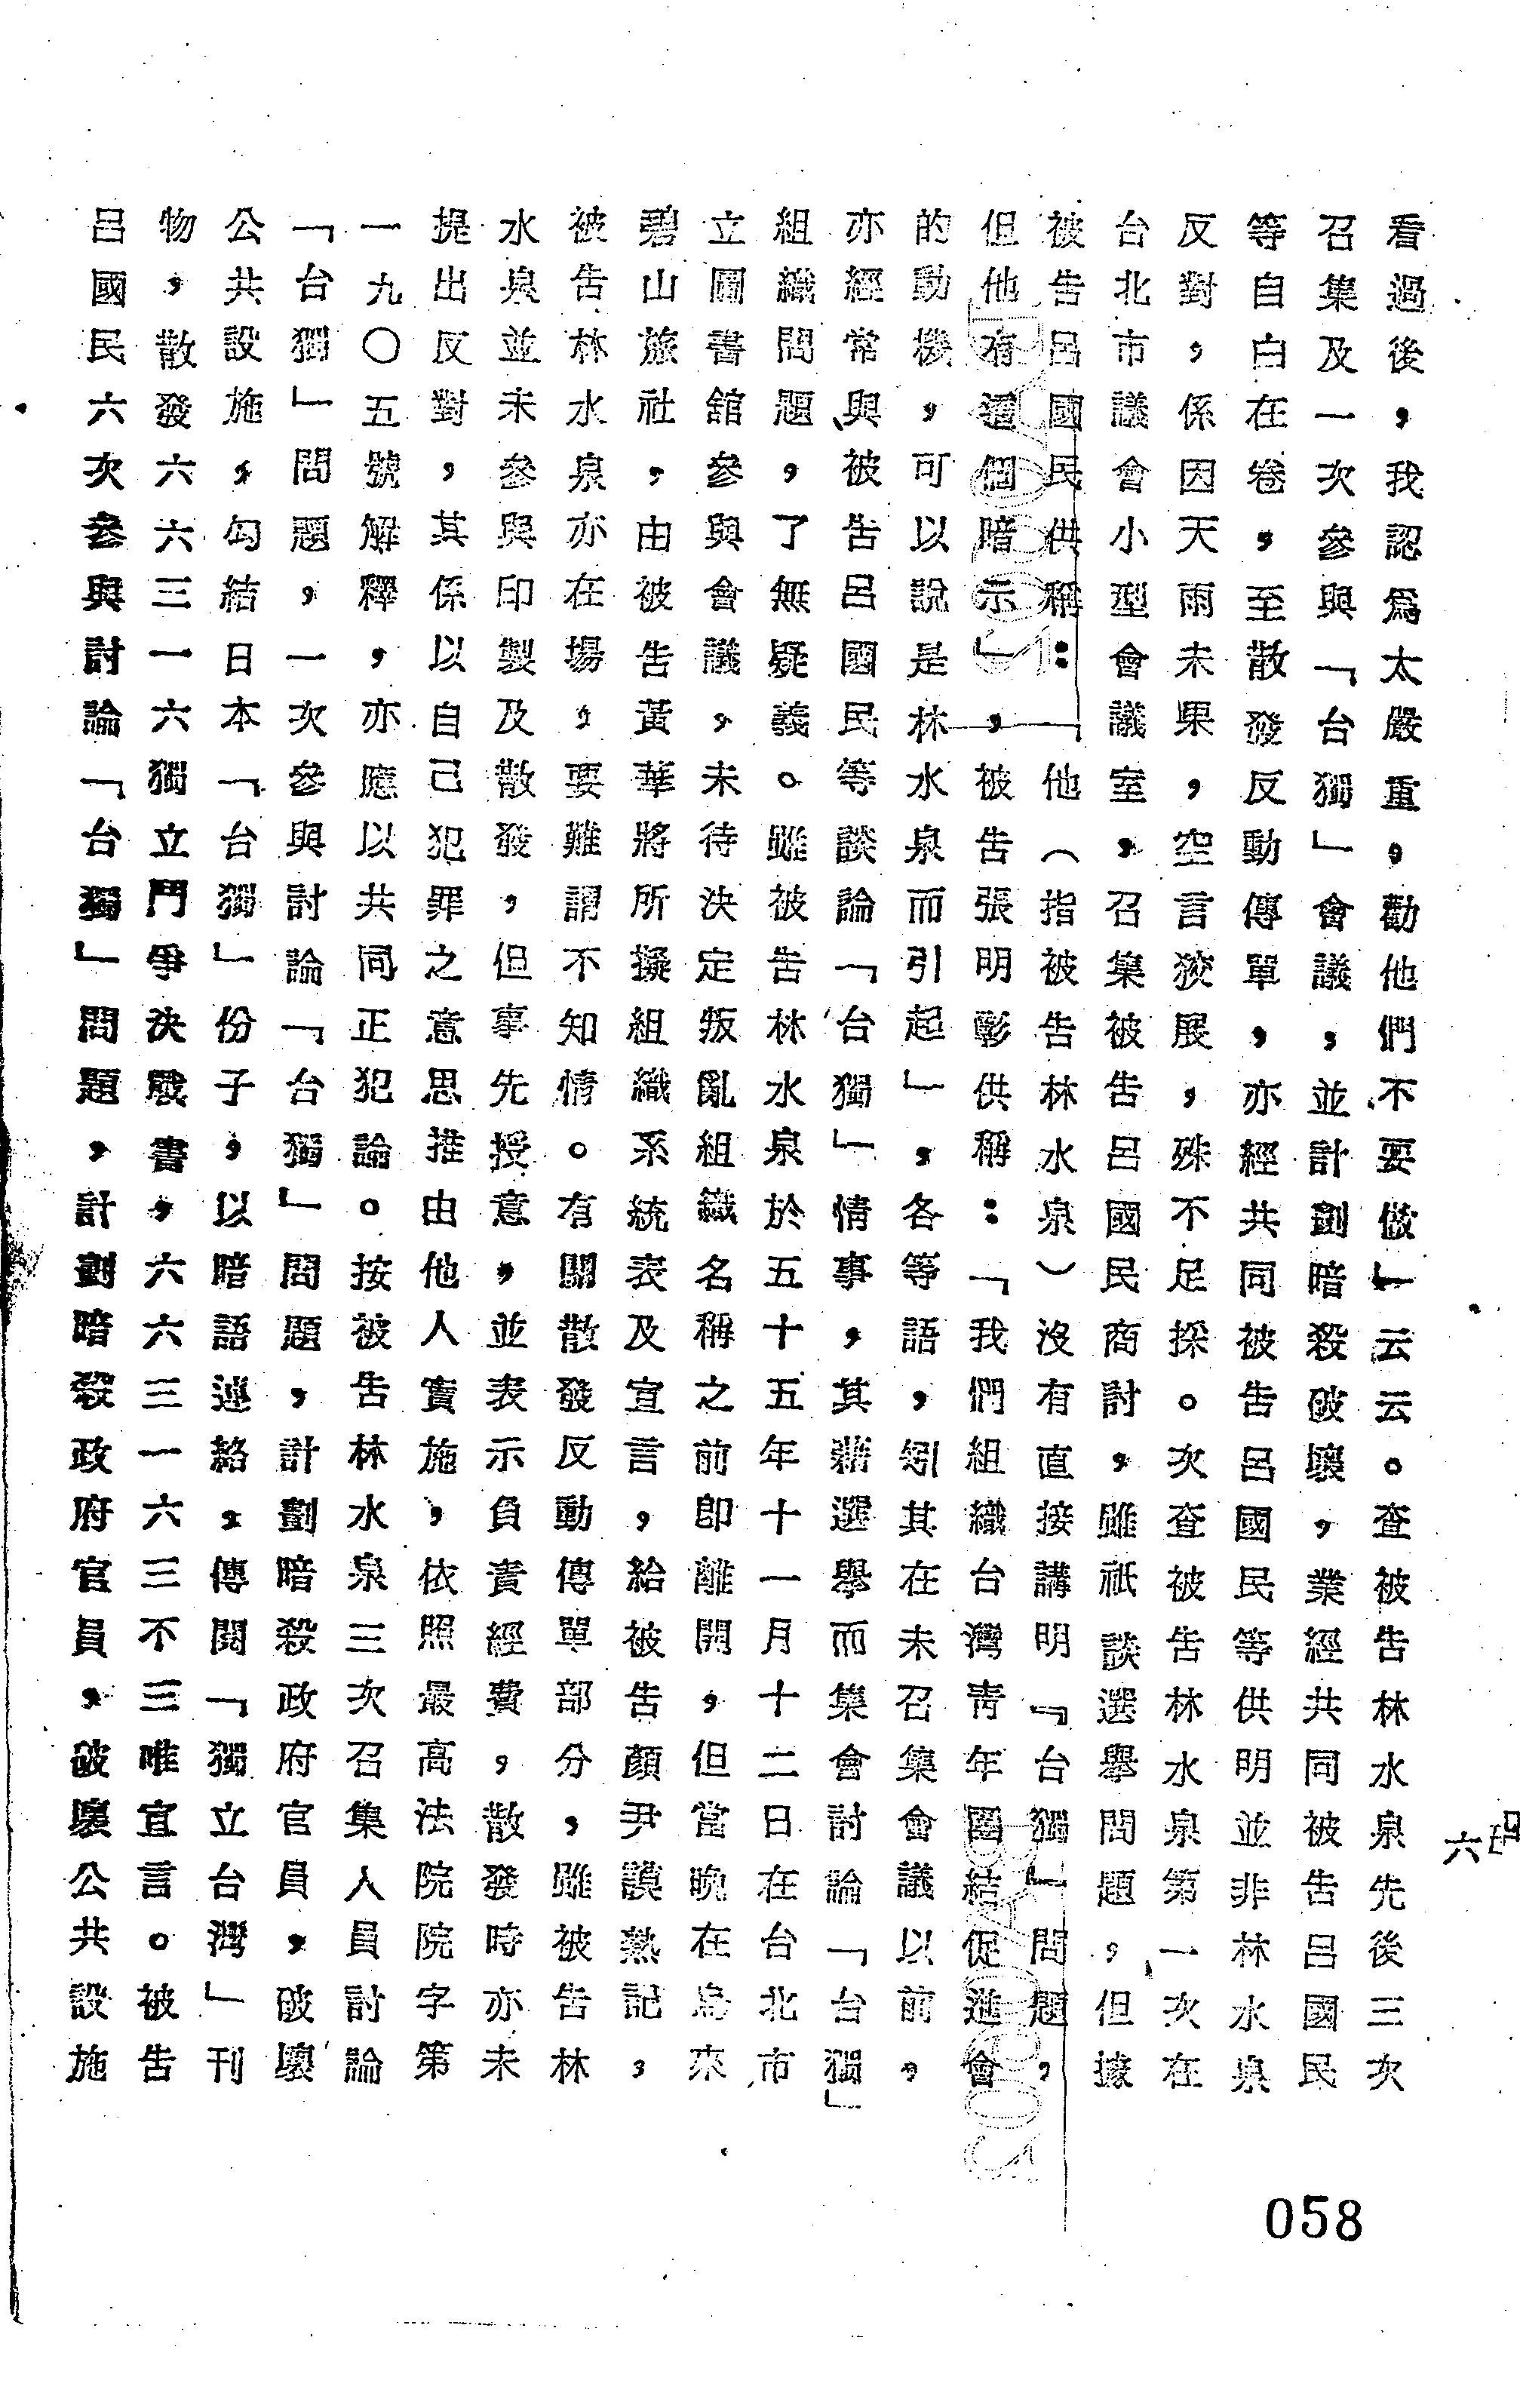 看過後，我認為太嚴重，勸他們不要做」云云。查被告林水泉先後三次
召集及一次參與「台獨」會議，並計劃暗殺破壞，業經共同被告呂國民
等自白在卷，至散發反動傳單，亦經共同被告呂國民等供明並非林水泉
反對，係因天雨未果，空言狡展，殊不足採。次查被告林水泉第一次在
台北市議會小型會議室，召集被告呂國民商討，雖祇談選舉問題，但據
被告呂國民供稱：「他（指被告林水泉）沒有直接講明『台獨』問題，
但他有這個暗示」，被告張明彰供稱：「我們組織台灣青年團結促進會
的動機，可以說是林水泉而引起」，各等語，矧其在未召集會議以前，
亦經常與被告呂國民等談論「台獨」情事，其藉選舉而集會討論「台獨」
組織問題，了無疑義。雖被告林水泉於五十五年十一月十二日在台北市
立圖書館參與會議，未待決定叛亂組織名稱之前即離開，但當晚在烏來
碧山旅社，由被告黃華將所擬組織系統表及宣言，給被告顏尹謨熟記，
被告林水泉亦在場，要難謂不知情。有關散發反動傳單部分，雖被告林
水泉並未參與印製及散發，但事先授意，並表示負責經費，散發時亦未
提出反對，其係以自己犯罪之意思推由他人實施，依照最高法院院字第
一九〇五號解釋，亦應以共同正犯論。按被告林水泉三次召集人員討論
「台獨」問題，一次參與討論「台獨」問題，計劃暗殺政府官員，破壞
公共設施，勾結日本「台獨」份子，以暗語連絡，傳閱「獨立台灣」刊
物，散發六六三一六獨立鬥爭決戰書，六六三一六三不三唯宣言。被告
呂國民六次參與討論「台獨」問題，計劃暗殺政府官員，破壞公共設施
六
058